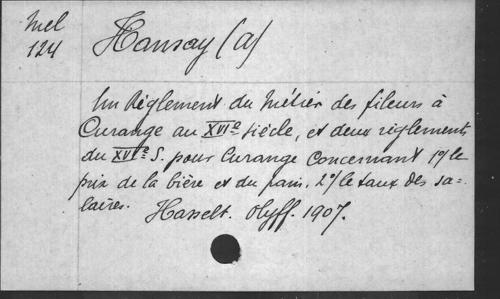 Mel
124
Hansay (A)
Un Règlement du Métier des fileurs à
Curange au XVIe siècle, et deux règlements
du XVIe S. pour Curange concernant 1º/ le
prix de la bière et du pain. 2º/ le taux des sa-
laires. Hasselt. Olyff. 1907.